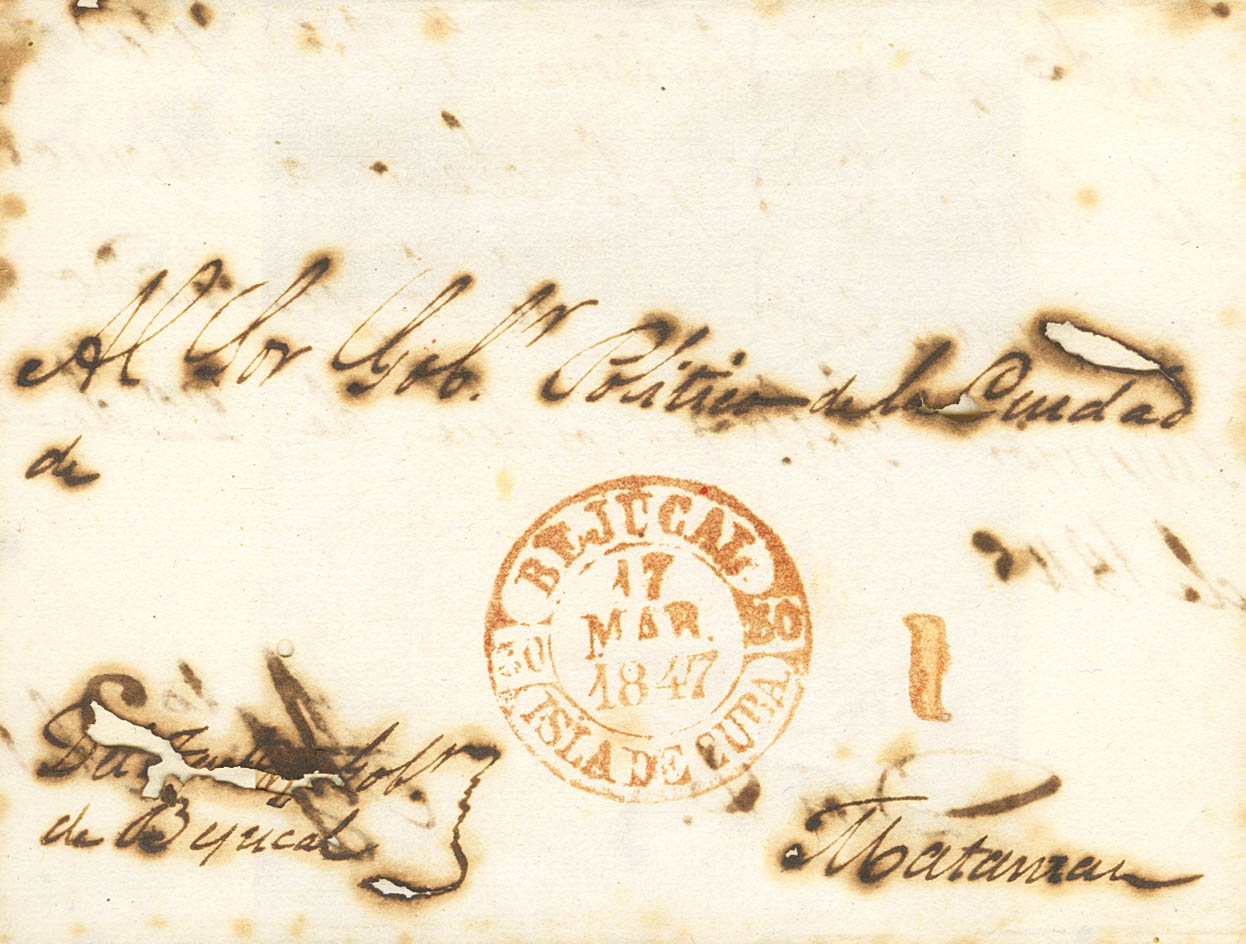 Al Sor Gobr. Politico de la Ciudad
de
BEJUCAL
17
MAR.
1847
ISLA DE CUBA
1
Gobr
de Bejucal
Matanzas